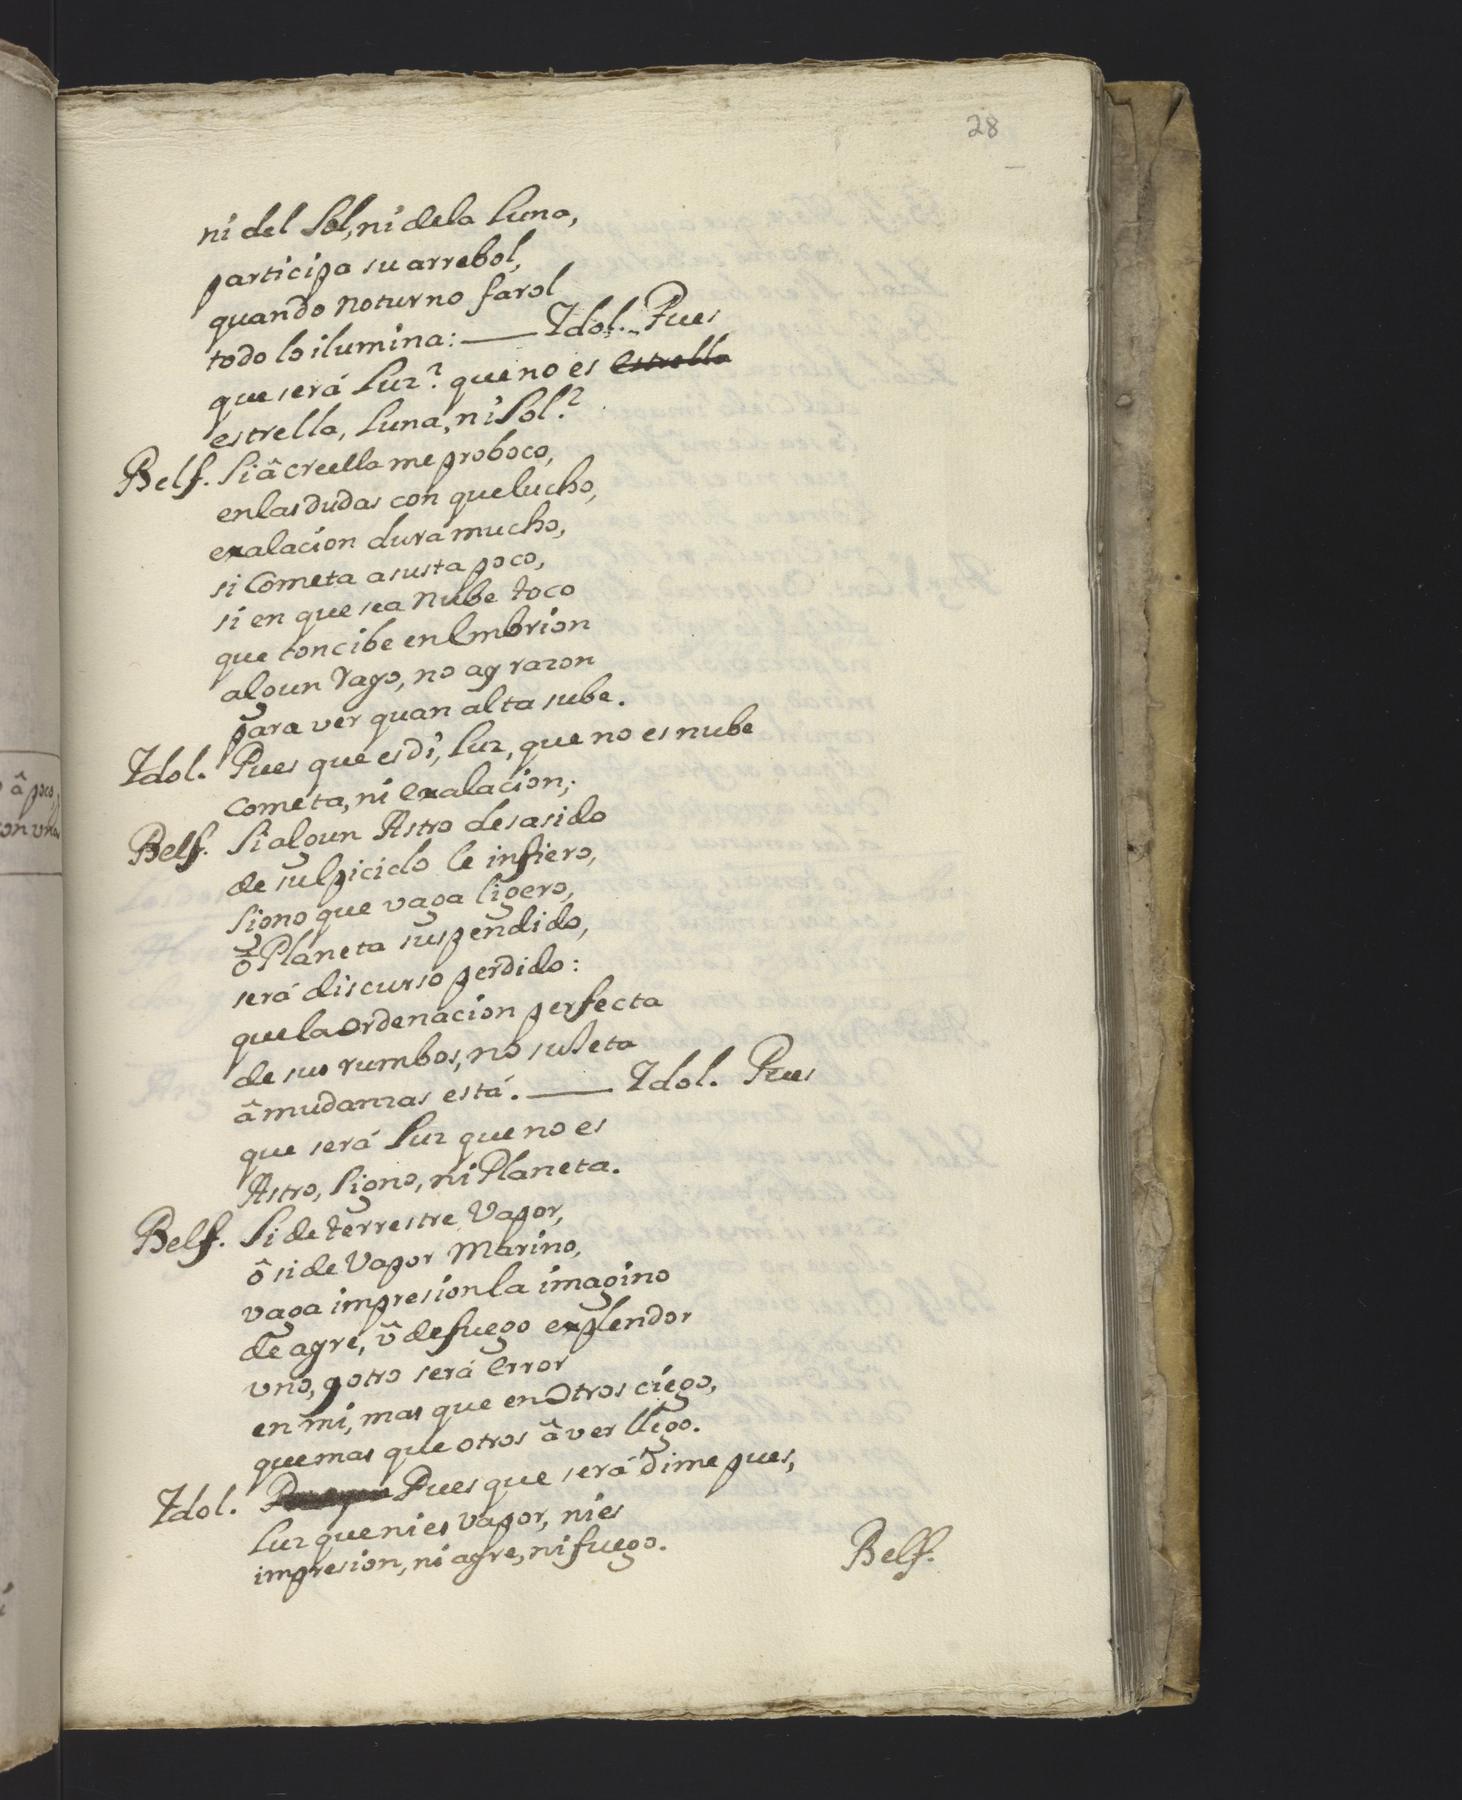 28
ni del Sol, ni dela Luna,
participa su arrebol,
quando noturno farol
todo lo ilumina: — Idol. Pues
que será Luz? que no es estrella
estrella, Luna, ni Sol?
Belf. Si â creella me proboco,
enlas dudas con que lucho,
exalacion dura mucho,
si Cometa asusta poco,
si en que sea Nube toco
que concibe en Embrion
algun Rayo, no ay razon
para ver quan alta sube.
Idol. Pues que es di, Luz, que no es nube
Cometa, ni exalacion;
Belf. Si algun Astro desasido
de su epiciclo le infiero,
Signo que vaga ligero,
ô Planeta suspendido,
será discurso perdido:
que la ordenacion perfecta
de sus rumbos, no suJeta
â mudanzas está. — Idol. Pues
que será Luz que no es
Astro, Signo, ni Planeta.
Belf. Si de terrestre Vapor,
ô si de Vapor Marino,
vaga impresion la imagino
de ayre, û de fuego explendor
uno, y otro será Error
en mi, mas que en Otros ciego,
que mas que otros â ver llego.
Idol. Pues que será dime pues,
Luz que ni es vapor, ni es
impresion, ni ayre, ni fuego.
Belf.
â poco,
con una